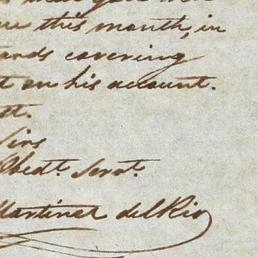 this month, in
covering
t on his account.
st.
Sirs
Obedt. Servt.
Martinez del Rio